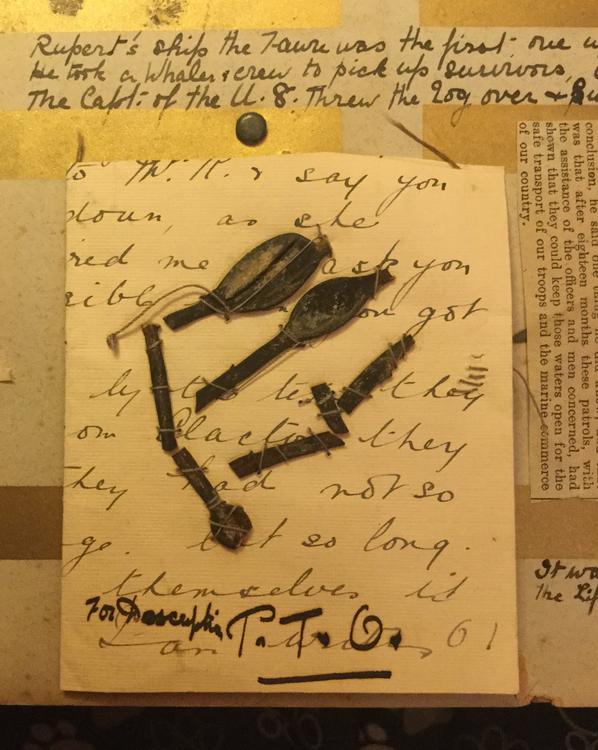 Rupert's ship the Fawn was the first one
He took a whaler & crew to pick up survivors,
The Capt: of the U. 8. Threw the log over &
to Mr. R. & say you
down, as she
red me ask you
ribl you got
ly to te they
om Clacton they
They had not so
ge. but so long.
themselves it
For Description P.T.O.
61
conclusion, he said one thing he did
was that after eighteen months these patrols, with
the assistance of the officers and men concerned, had
shown that they could keep those waters open for the
safe transport of our troops and the marine commerce
of our country.
It wa
the